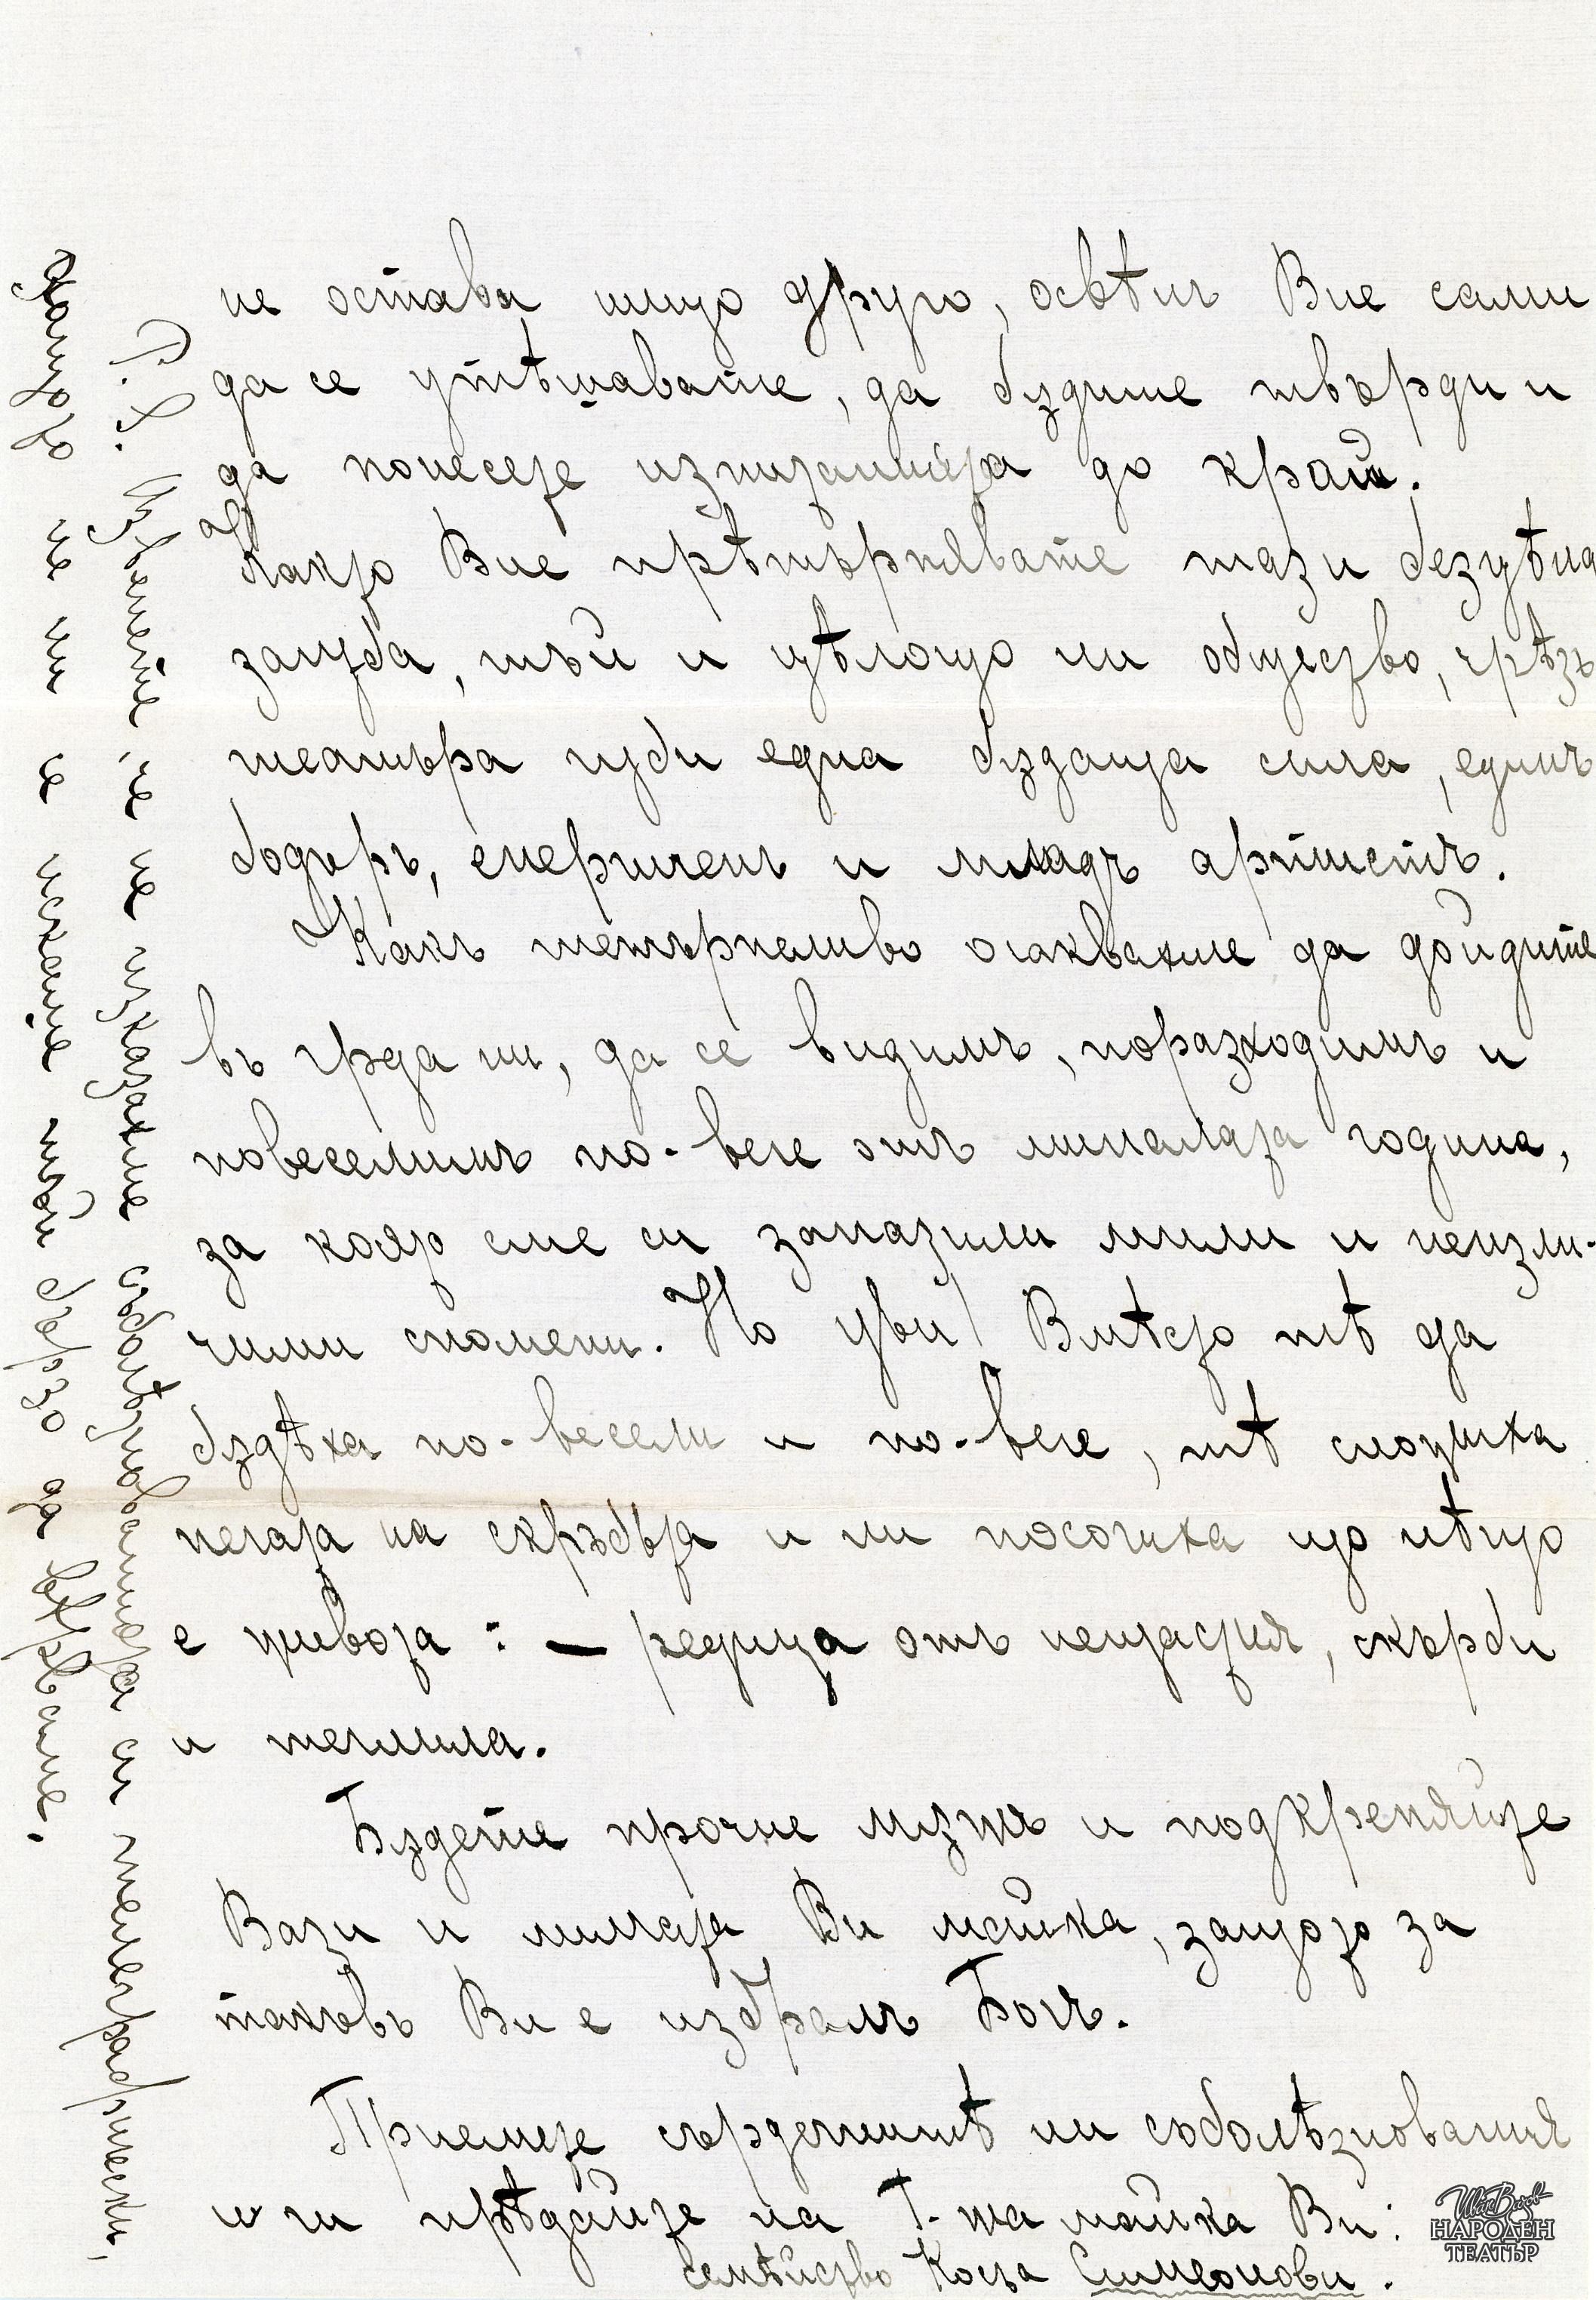 не остава нищо друго, освѣнъ Вие сами
да се утѣшавате, да бѫдите твърди и
да понесете изпитанията до край.
Както Вие прѣтърпявате тази безцѣнна
загуба, тъй и цѣлото ни общество, чрѣзъ
театъра губи една бѫдаща сила, единъ
бодъръ, енергиченъ и младъ артистъ.
Какъ нетърпеливо очаквахме да дойдите
въ града ни, да се видимъ, поразходимъ и
повеселимъ по-вече отъ миналата година,
за която сме си запазили мили и неизли-
чими спомени. Но уви! Вмѣсто тѣ да
бѫдѣха по-весели и по-вече, тѣ сложиха
печата на скръбьта и ни посочиха що нѣщо
е живота: — редица отъ нещастия, скърби
и теглила.
Бѫдете прочие мѫжъ и подкрепяйте
Вази и милата Ви майка, защото за
таковъ Ви е избралъ Богъ.
Приемете сърдечнитѣ ни съболѣзнования
и ги прѣдайте на Г-жа майка Ви:
семѣйство Коста Симеонови.
П. П. Извенете, че не изказахме съболѣзнованията си телеграфически,
защото не ни се искаше тъй бързо да вѣрваме.
Иван Вазов
НАРОДЕН
ТЕАТЪР